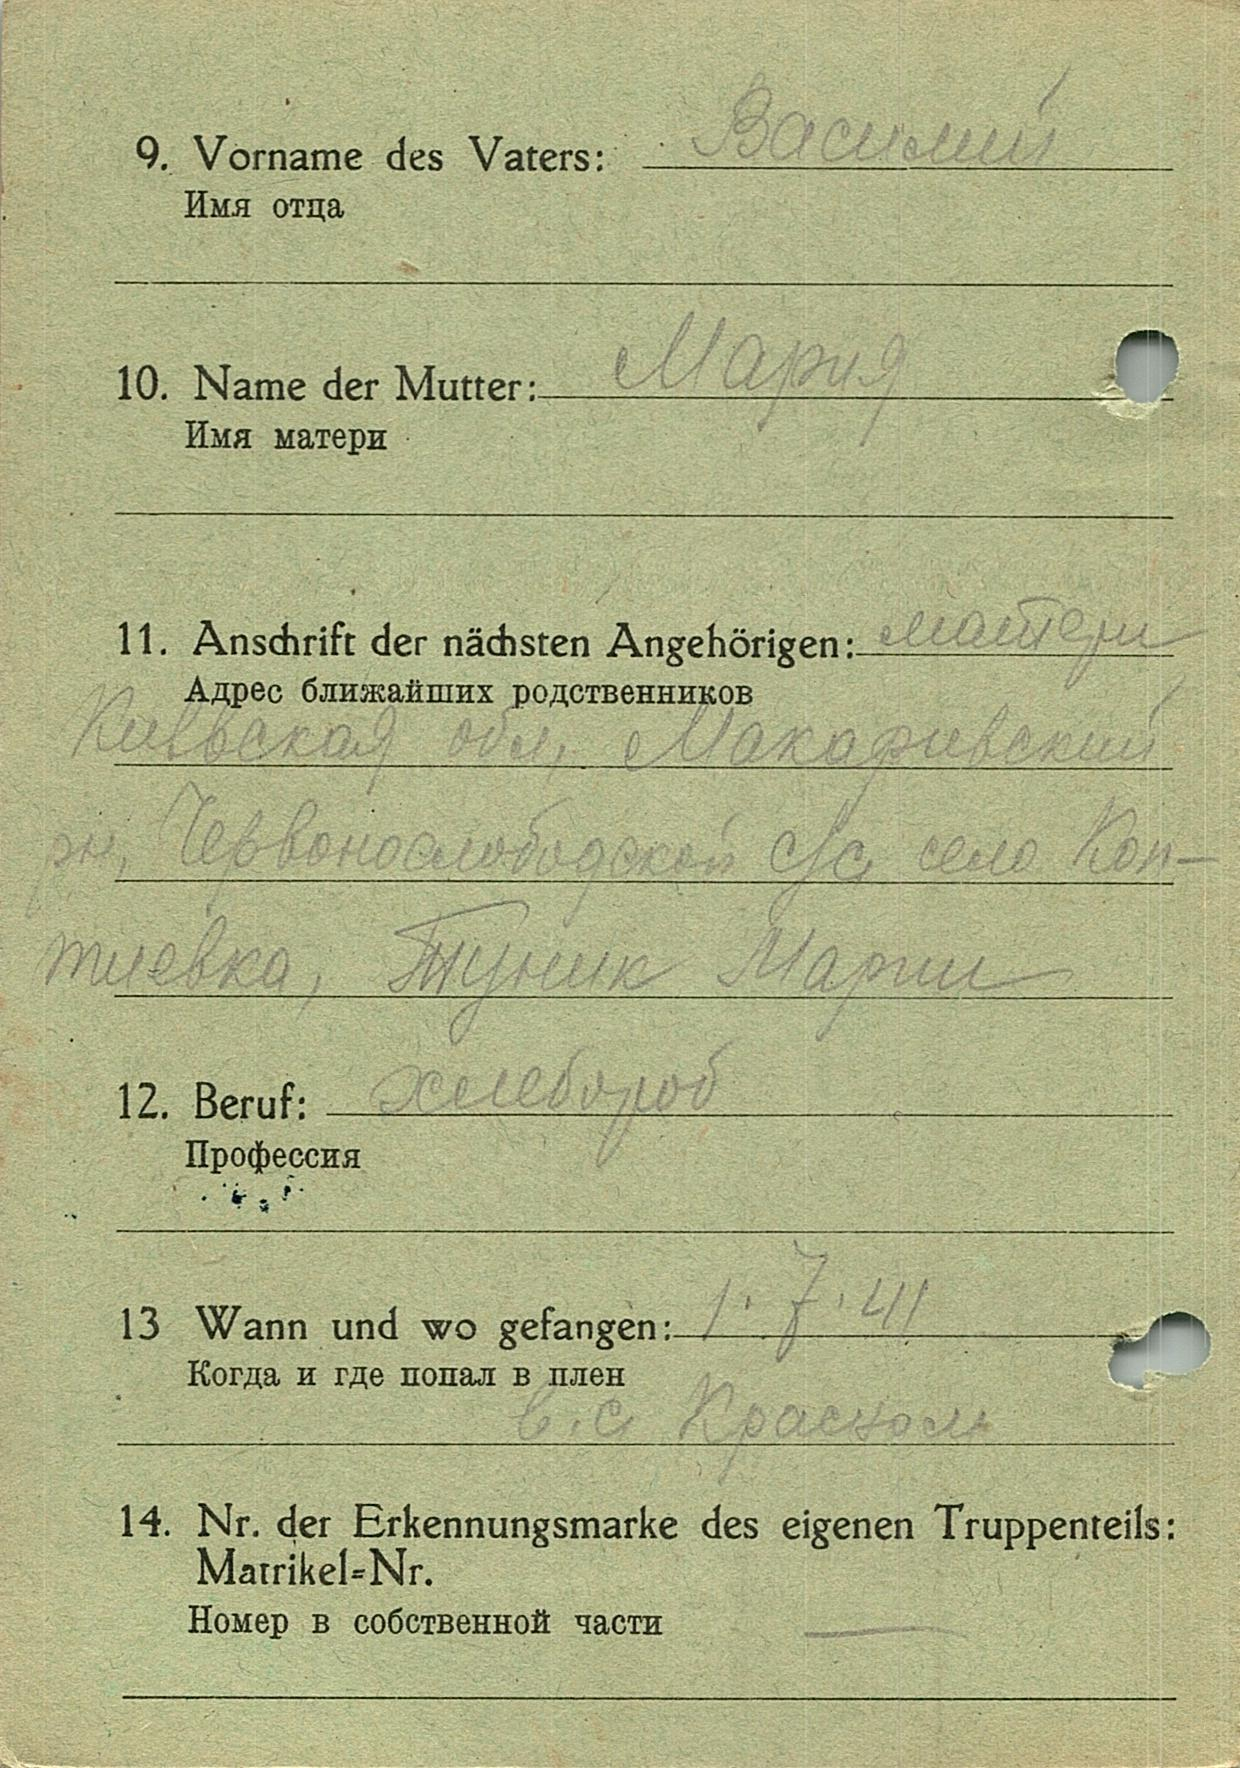 9. Vorname des Vaters: Василий
Имя отца
10. Name der Mutter: Мария
Имя матери
11. Anschrift der nächsten Angehörigen: матери
Адрес ближайших родственников
Киевская обл, Макаривский
рн, Червонослободской с/с, село Коп-
тиевка, Туник Марии
12. Beruf: хлебороб
Профессия
13 Wann und wo gefangen: 1.7.41
Когда и где попал в плен
в.с. Красном
14. Nr. der Erkennungsmarke des eigenen Truppenteils:
Matrikel=Nr.
Номер в собственной части —